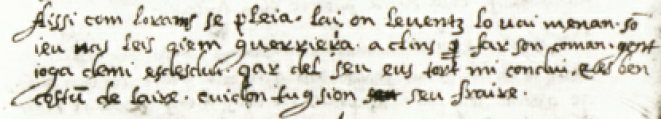 Aissi com lo rams se pleia. lai on leventz lo uai menan. so
ieu uas leis qiem guerriera. aclins p far son coman. gent
ioga demi esclesclui. qar del seu eus tort mi conclui. eles ben
costu de laire. cuidon tuq sion seu fraire.